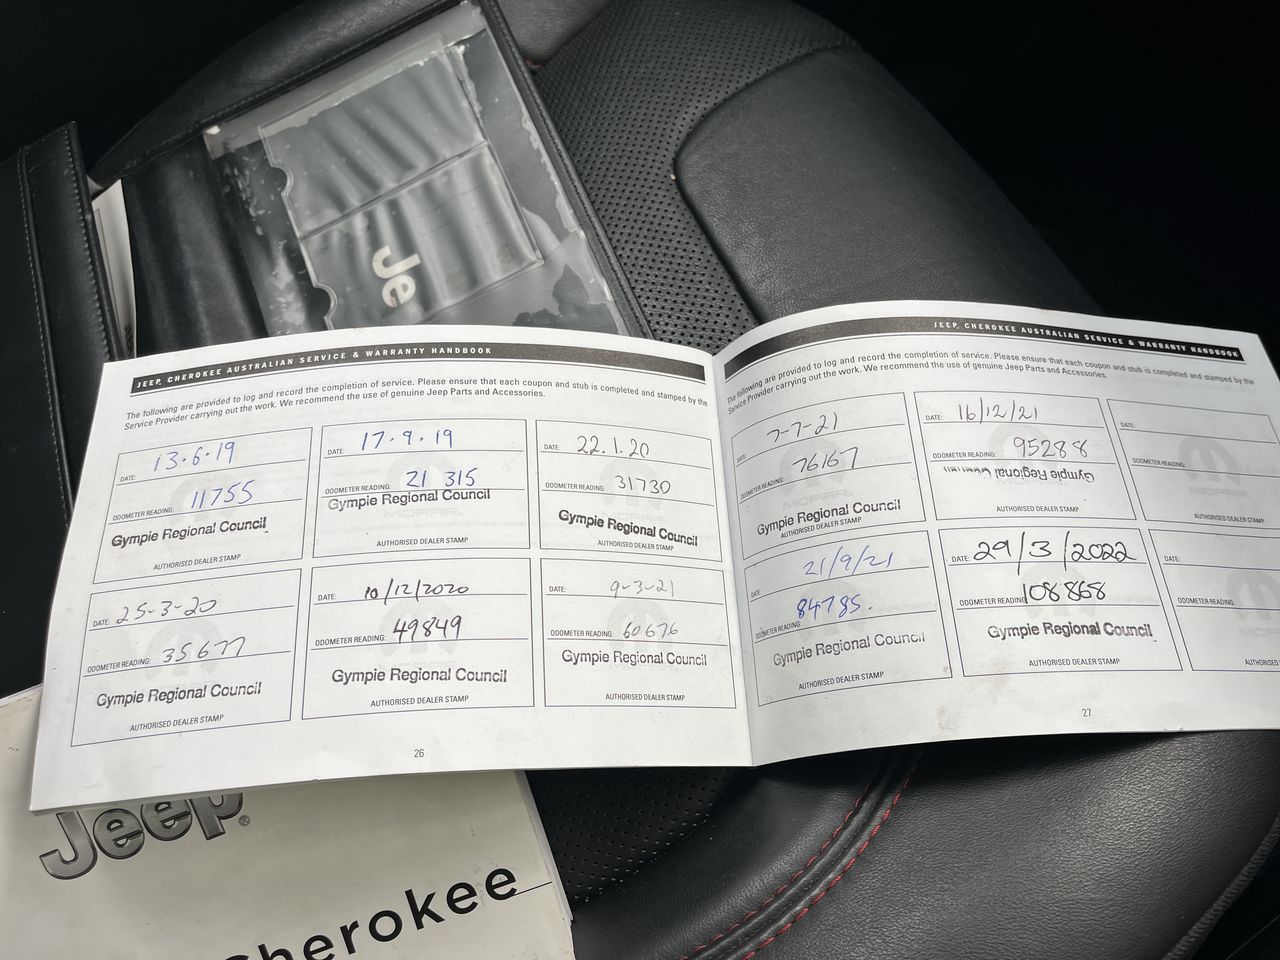 Je
JEEP, CHEROKEE AUSTRALIAN SERVICE & WARRANTY HANDBOOK
The following are provided to log and record the completion of service. Please ensure that each coupon and stub is completed and stamped by the
Service Provider carrying out the work. We recommend the use of genuine Jeep Parts and Accessories.
DATE: 13.6.19
ODOMETER READING: 11755
Gympie Regional Council
AUTHORISED DEALER STAMP
DATE: 17.9.19
ODOMETER READING: 21 315
Gympie Regional Council
MOPAR
AUTHORISED DEALER STAMP
DATE: 22.1.20
ODOMETER READING: 31730
Gympie Regional Council
AUTHORISED DEALER STAMP
DATE: 25-3-20
ODOMETER READING: 35677
Gympie Regional Council
AUTHORISED DEALER STAMP
DATE: 10/12/2020
ODOMETER READING: 49849
MOPAR
Gympie Regional Council
AUTHORISED DEALER STAMP
DATE: 9-3-21
ODOMETER READING: 60676
Gympie Regional Council
AUTHORISED DEALER STAMP
26
JEEP, CHEROKEE AUSTRALIAN SERVICE & WARRANTY HANDBOOK
The following are provided to log and record the completion of service. Please ensure that each coupon and stub is completed and stamped by the
Service Provider carrying out the work. We recommend the use of genuine Jeep Parts and Accessories.
DATE: 7-7-21
ODOMETER READING: 76167
Gympie Regional Council
AUTHORISED DEALER STAMP
DATE: 16/12/21
ODOMETER READING: 95288
Gympie Regional Council
AUTHORISED DEALER STAMP
DATE:
ODOMETER READING:
DATE: 21/9/21
ODOMETER READING: 84785.
Gympie Regional Council
AUTHORISED DEALER STAMP
DATE: 29/3/2022
ODOMETER READING: 108868
Gympie Regional Council
AUTHORISED DEALER STAMP
DATE:
ODOMETER READING:
MOPAR
27
Jeep®
Cherokee